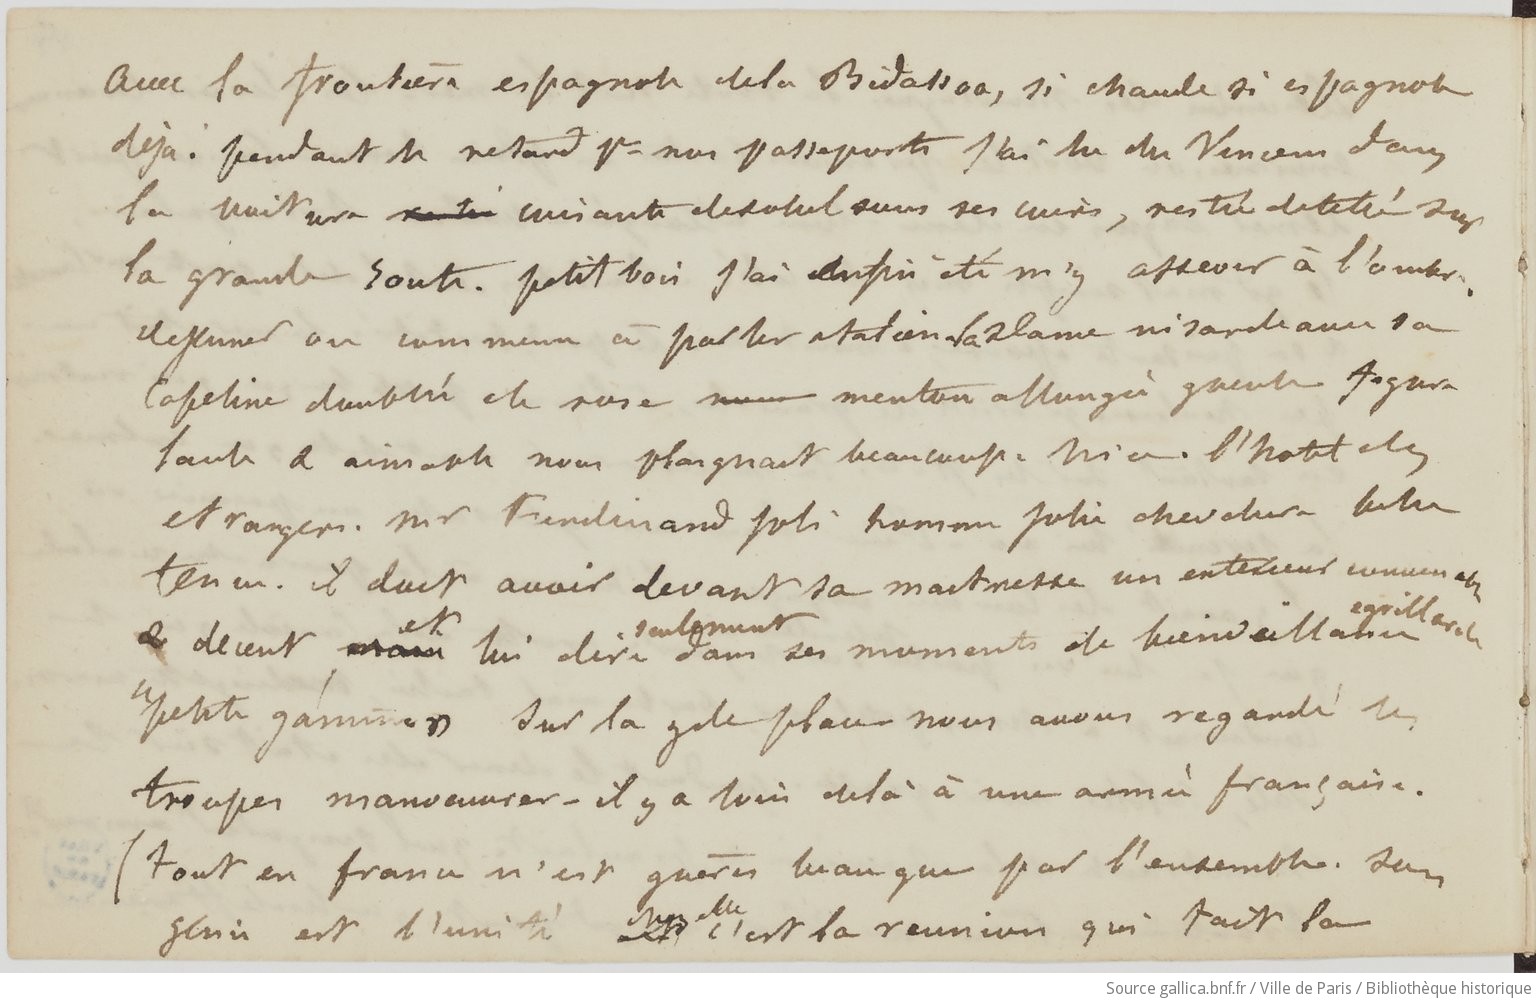 avec la frontière espagnole de la Bidassoa, si chaude si espagnole
déja. pendant le retard pr nos passeports j'ai lu du Vincens dans
la voiture cuisante de soleil sous ses cuirs, restée detelée sur
la grande route. petit bois j'ai été m'y asseoir à l'ombre.
dejeuner on commence à parler italien. la dame nisarde avec sa
Capeline doublée de rose menton allongé gueule figure
laide & aimable nous plaignait beaucoup. Nice. l'hotel des
etrangers. mr Ferdinand joli homme jolie chevelure belle
tenue. il doit avoir devant sa maitresse un exterieur convenable
& decent et lui dire seulement dans ses moments de bienveillance egrillarde
"petite gamine" sur la gde place nous avons regardé les
troupes manoeuvrer – il y a loin de là à une armée française.
(tout en france n'est guères beau que par l'ensemble. son
génie est l'unité chez elle c'est la reunion qui fait la
Source gallica.bnf.fr / Ville de Paris / Bibliothèque historique